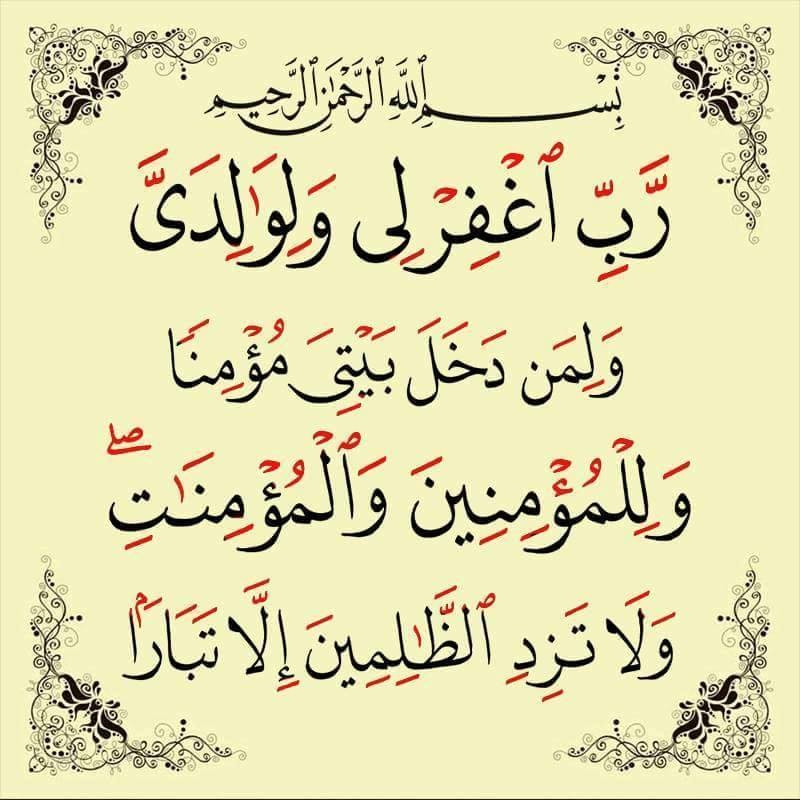 بِسْمِ ٱللَّهِ ٱلرَّحْمَٰنِ ٱلرَّحِيمِ
رَّبِّ ٱغْفِرْ لِى وَلِوَٰلِدَىَّ
وَلِمَن دَخَلَ بَيْتِىَ مُؤْمِنًا
وَلِلْمُؤْمِنِينَ وَٱلْمُؤْمِنَٰتِ ۖ
وَلَا تَزِدِ ٱلظَّٰلِمِينَ إِلَّا تَبَارًۢا